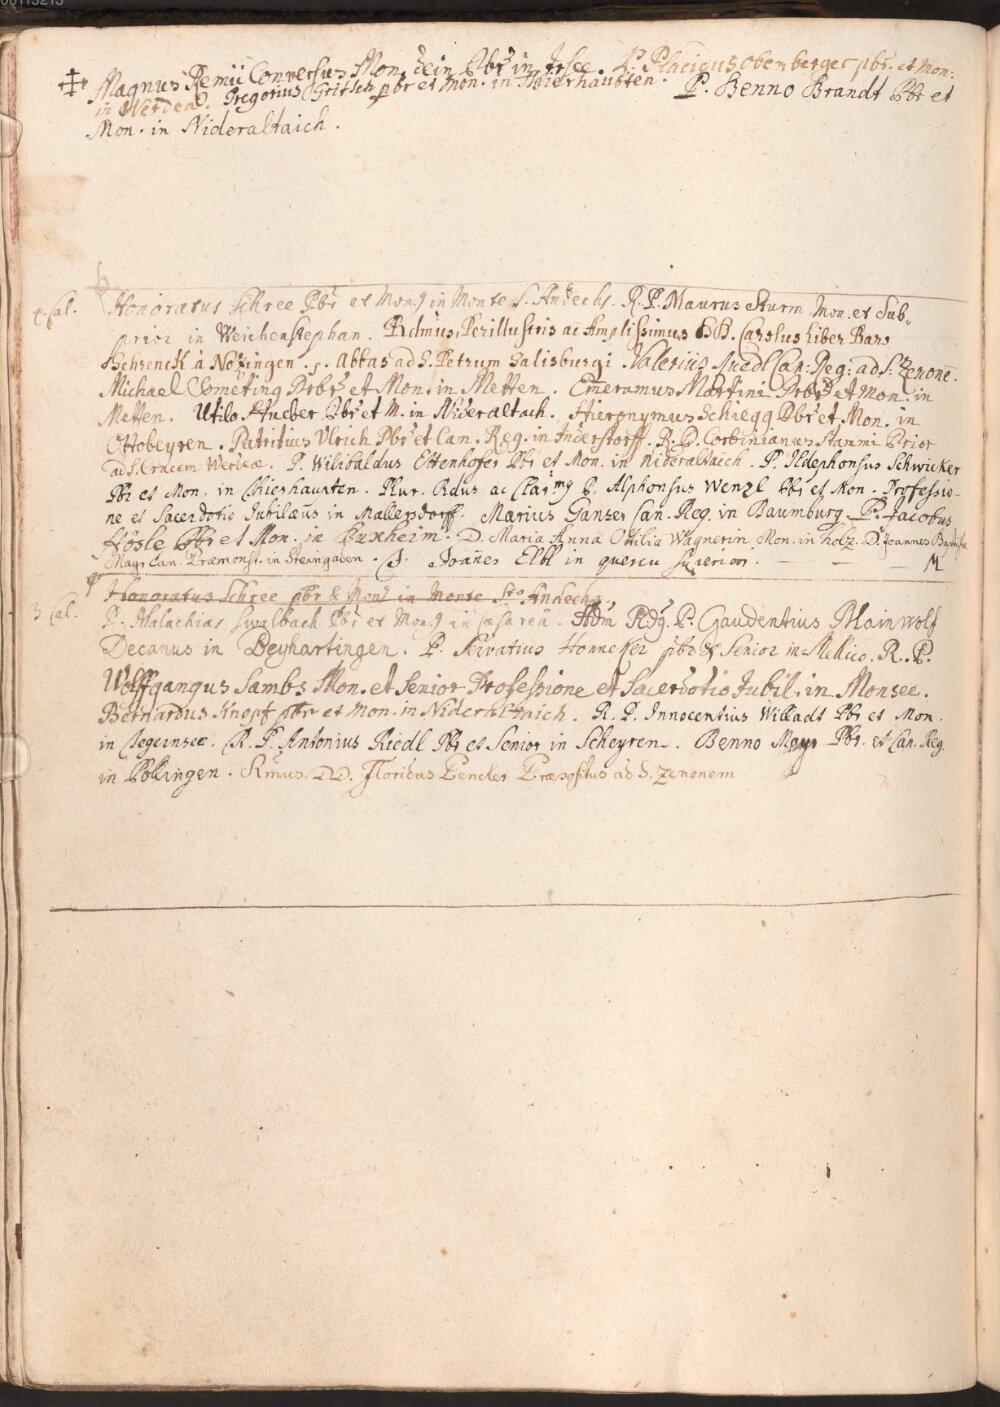 00113213
‡ Magnus Remii Conversus Mon. dein Pbr in Irsee. P. Placidus Obemberger pbr. et Mon:
in Werdea. Gregorius Gritsch pbr et Mon. in Thierhaubten. P. Benno Brandt Pbr et
Mon. in Nideraltaich.
4. Cal. Honoratus Schree Pbr et Mon. in Monte S. Andechs. R. P. Maurus Sturm Mon. et Sub„
prior in Weichenstephan. Rdmus, Perillustris ac Amplissimus DD. Carolus Liber Baro
Schrenck à Nozingen. Abbas ad S. Petrum Salisburgi. Valerius Can: Reg: ad S. Zenone.
Michael Someting Prbr et Mon. in Metten. Emeramus Martini Prbr et Mon. in
Metten. Utilo Stucber Pbr et M. in Nideraltach. Hieronymus Schiegg Pbr et Mon. in
Ottobeyren. Patritius Ulrich Pbr et Can. Reg. in Inderstorff. R. P. Corbinianus Stammi Prior
ad S. Crucem Werdeæ. P. Wilibaldus Ettenhofer Pbr et Mon. in Nideraltaich. P. Ildephonsus Schwicker
Pbr et Mon. in Thierhaupten. Plur. Rdus ac Clarmg P. Alphonsus Wenzl Pbr et Mon. Professio-
ne et Sacerdotio Jubilæus in Mallersdorff. Marius Ganser Can. Reg. in Baumburg. P. Jacobus
Hösle Pbr et Mon. in Buxheim. D. Maria Anna Ottilia Wagnerin Mon. in Holz. D. Joannes Baptista
Mayr Can. Præmonst. in Steingaden. Joanes Elbl in quercu superiori. — — — M
Honoratus Schree pbr & Mon in Monte Sto Andechs.
3. Cal. P. Malachias Swalbach Pbr et Mon. in Cæsarea. Adm Rdg. P. Gaudentius Mainwolf
Decanus in Deyhartingen. P. Servatius Honneker pbr & Senior in Mellico. R. P.
Wolffgangus Sambs Mon. et Senior Professione et Sacerdotio Jubil. in Monsee.
Bernardus Knopf pbr et Mon. in Nideraltaich. R. P. Innocentius Willadt Pbr et Mon.
in Tegernsee. R. P. Antonius Riedl Pbr et Senior in Scheyren. Benno Mayr Pbr. et Can. Reg.
in Pollingen. Rmus. DD. Floridus Præpositus ad S. Zenonem